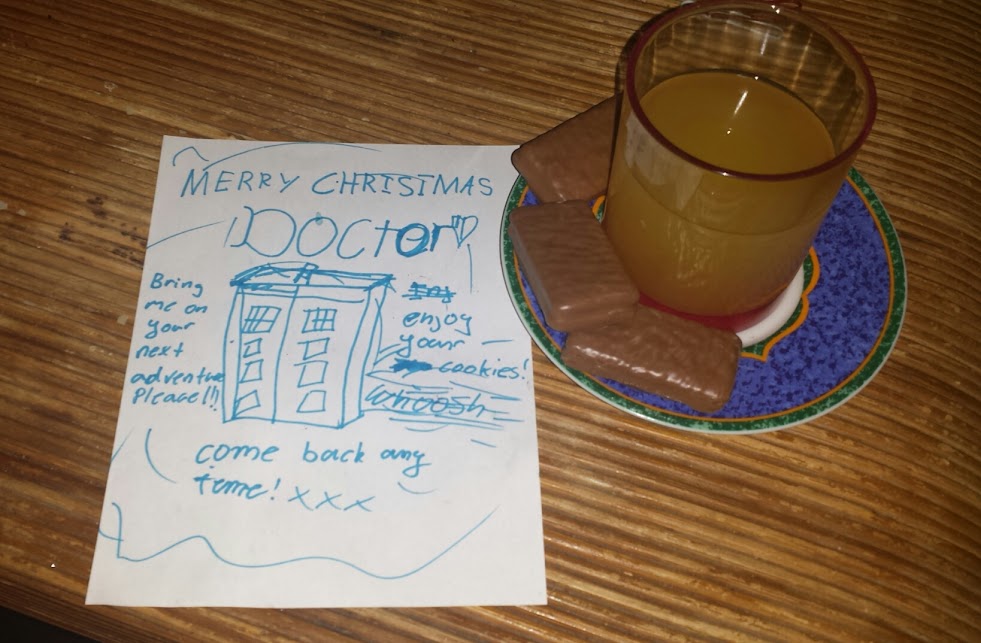 MERRY CHRISTMAS
DOCtor
Bring
me on
your
next
adventure
Please!!!
enjoy
your
cookies!
whoosh
come back any
time! xxx